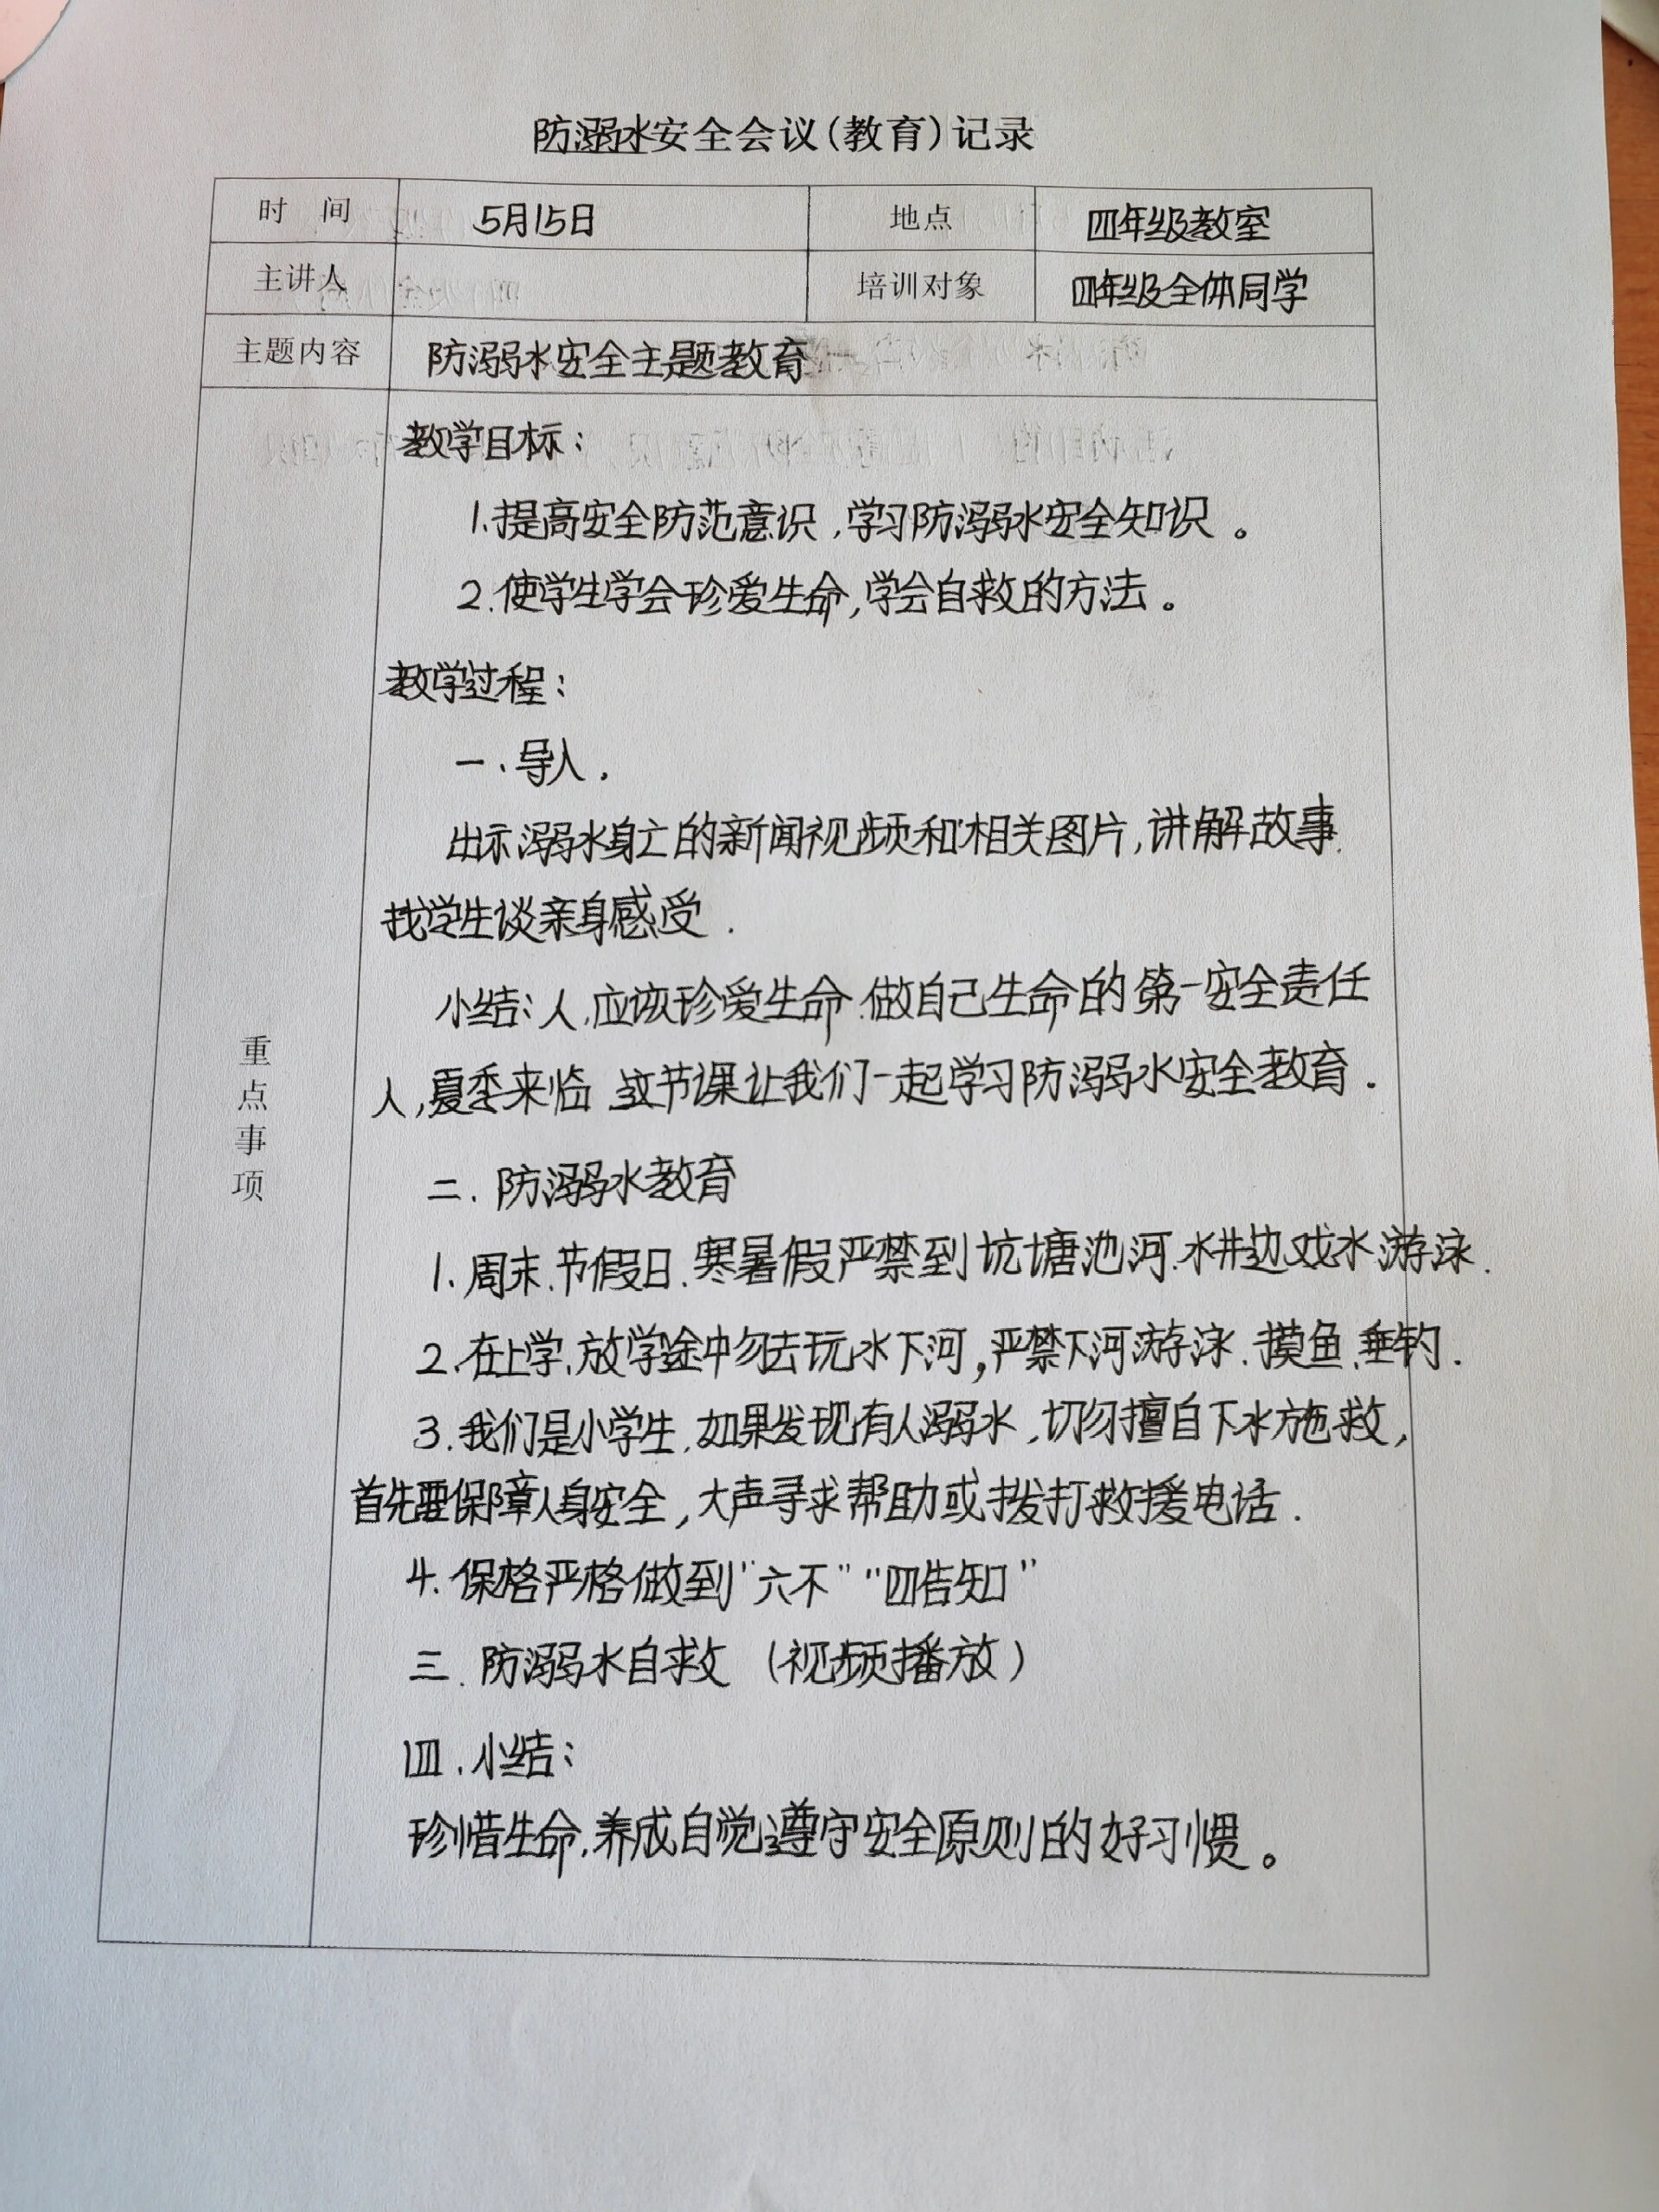 防溺水安全会议(教育)记录
时 间 5月15日 地点 四年级教室
主讲人 培训对象 四年级全体同学
主题内容 防溺水安全主题教育
重点事项
教学目标：
1.提高安全防范意识,学习防溺水安全知识。
2.使学生学会珍爱生命,学会自救的方法。
教学过程：
一、导入.
出示溺水身亡的新闻视频和相关图片,讲解故事.
找学生谈亲身感受.
小结：人,应该珍爱生命.做自己生命的第一安全责任
人,夏季来临 这节课让我们一起学习防溺水安全教育.
二.防溺水教育
1.周末.节假日.寒暑假严禁到坑塘池河.水井边戏水游泳.
2.在上学、放学途中勿去玩水下河,严禁下河游泳.摸鱼.垂钓.
3.我们是小学生.如果发现有人溺水,切勿擅自下水施救,
首先要保障人身安全,大声寻求帮助或拨打救援电话.
4.保格严格做到"六不""四告知"
三.防溺水自救 (视频播放)
四.小结：
珍惜生命.养成自觉遵守安全原则的好习惯。